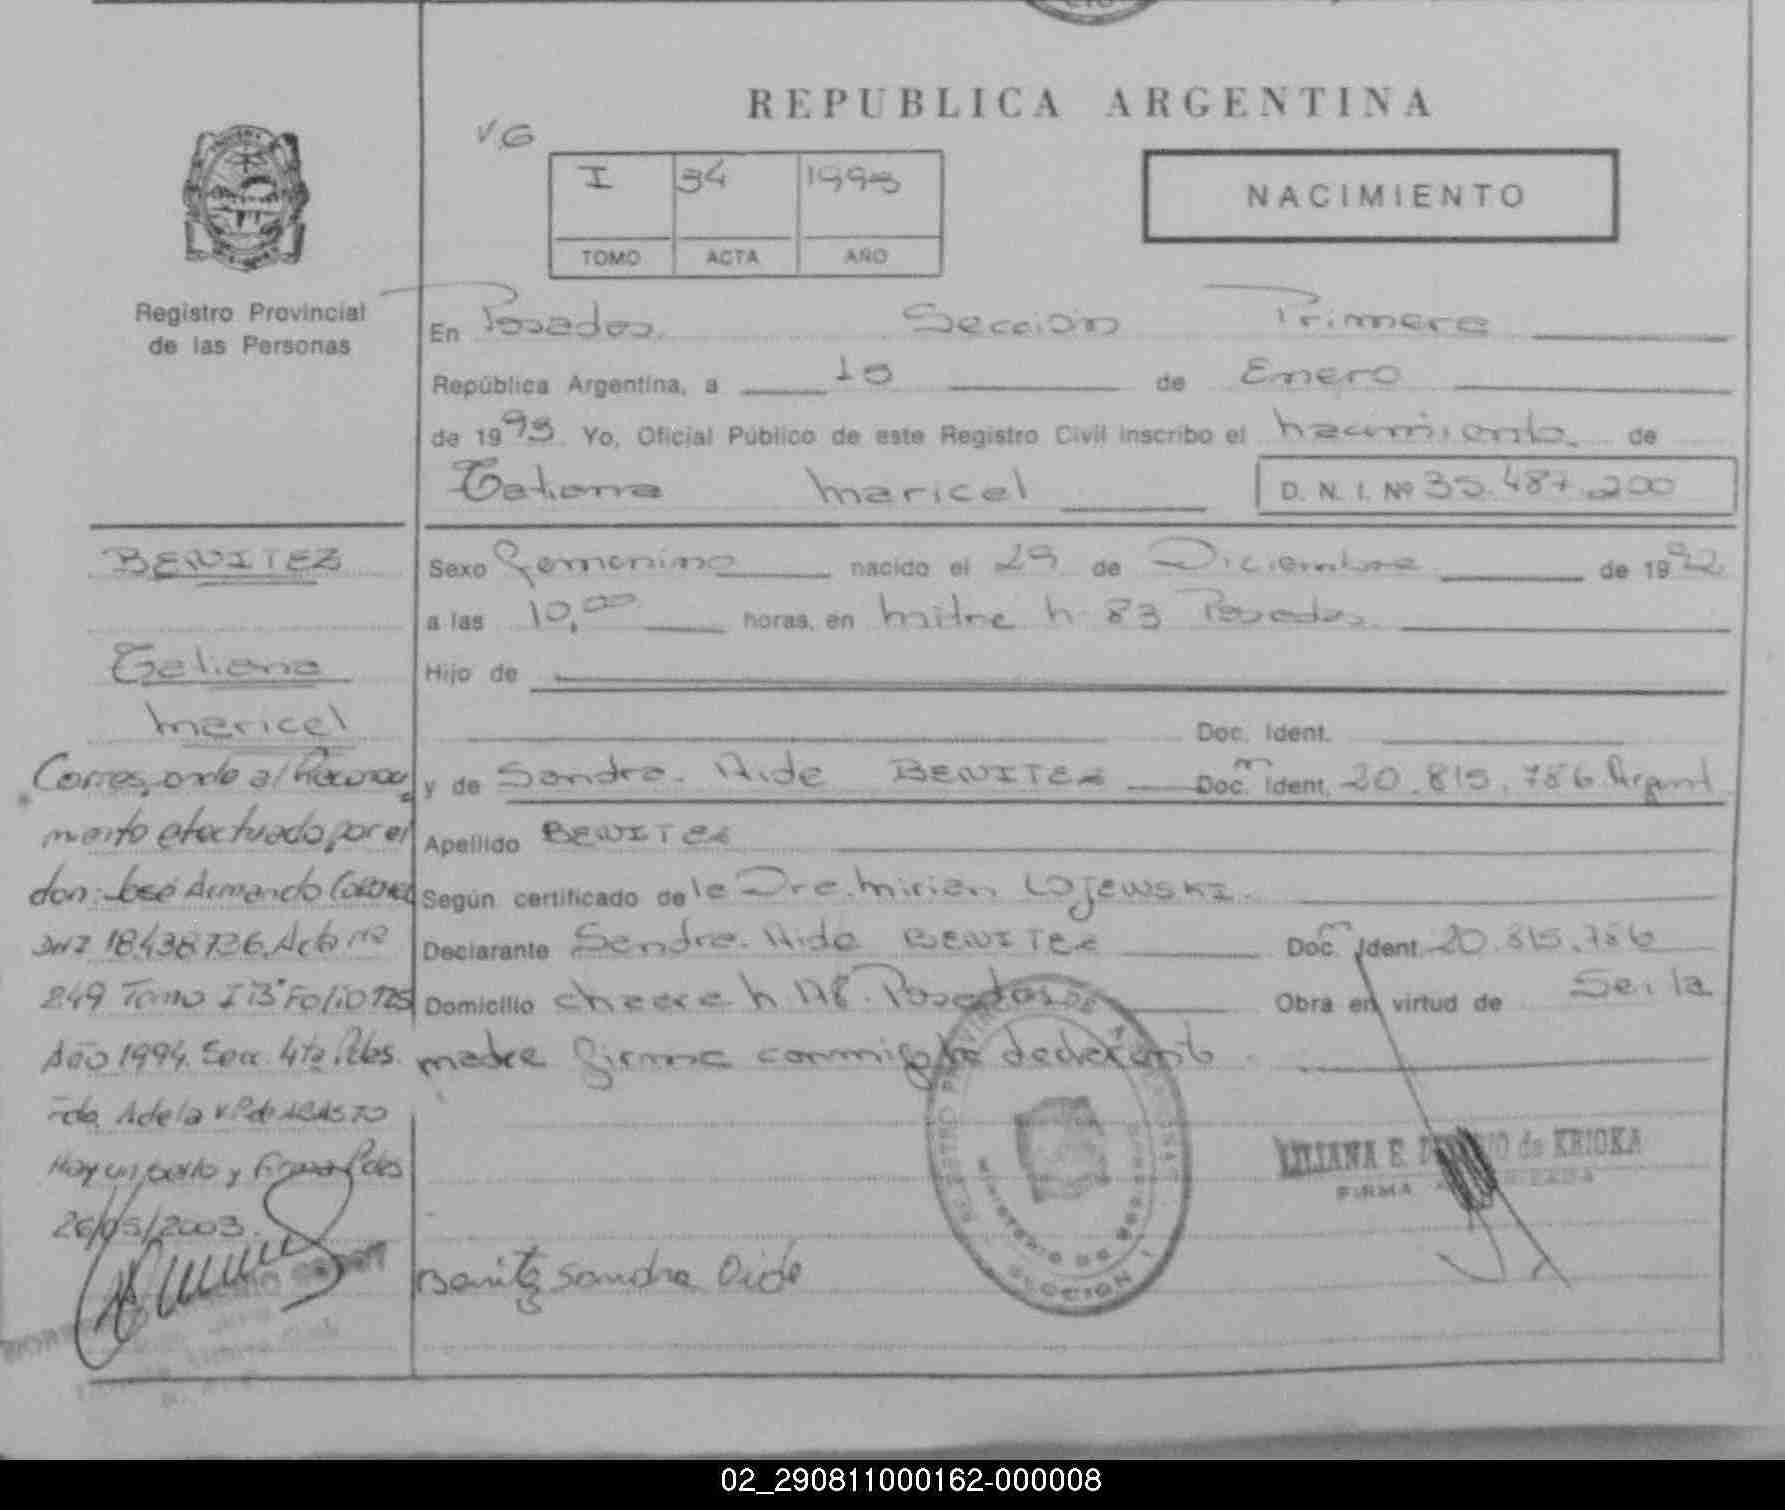 REPUBLICA ARGENTINA
VG
I 34 1993
TOMO ACTA AÑO
NACIMIENTO
Registro Provincial
de las Personas
En Posadas. Sección Primera
República Argentina, a 10 de Enero
de 1993 Yo, Oficial Público de este Registro Civil inscribo el nacimiento de
Tatiana Maricel D. N. I. Nº 35.487.200
BENITEZ
Tatiana
Maricel
Sexo Femenino nacido el 29 de Diciembre de 1992
a las 10,00 horas, en Mitre n 83 Posadas.
Hijo de
Doc. Ident.
y de Sandra Aide BENITEZ Doc. Ident. 20.815.786 Argent
Apellido BENITEZ
Según certificado de la Dra. Mirian LOJEWSKI.
Declarante Sandra Aide BENITEZ Doc. Ident. 20.815.786
Domicilio Posadas Obra en virtud de Ser la
madre firma conmigo la declarante
Corresponde al Reconoci
miento efectuado por el
don: José Armando
DNI 18.438.736. Acta nº
849 Tomo Folio 125
Año 1994. Secc. 4ta. Pdas.
Fdo. Adela
Hay un sello y firma Pdas
26/05/2003.
Benitez Sandra Aide
REGISTRO PROVINCIAL DE LAS PERSONAS
SECCION I
LILIANA E. de KRIOKA
FIRMA AUTORIZADA
02_290811000162-000008